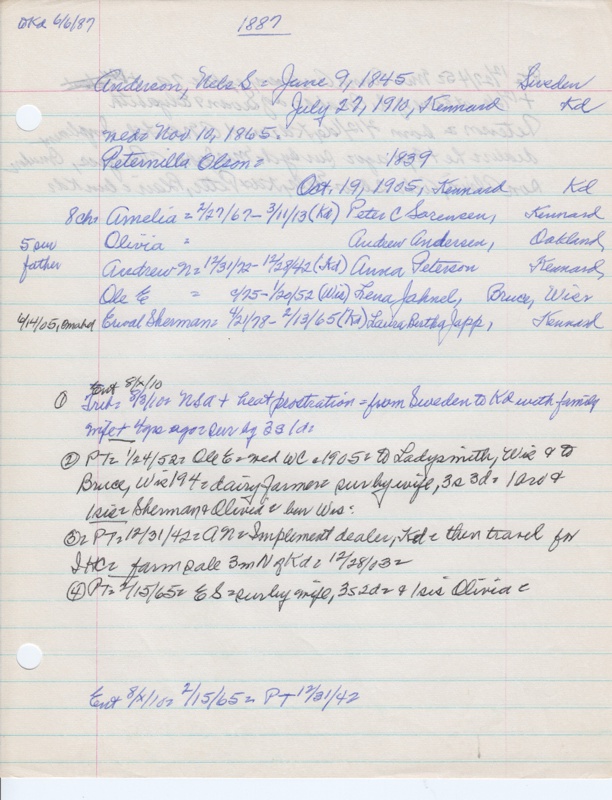 6/6/87
1887
Anderson, Nels S = June 9, 1845 Sweden
July 27, 1910, Kennard Kd
med= Nov 10, 1865=
Peternilla Olson= 1839
Oct. 19, 1905, Kennard Kd
8ch= Amelia = 2/27/67-3/11/13 (Kd) Peter C Sorensen, Kennard
5 sur Olivia = Andrew Andersen, Oakland,
father Andrew N= 12/31/72-12/28/42 (Kd) Anna Peterson Kennard,
Ole E = /75-1/20/52 (Wis) Lena Jahnel, Bruce, Wis=
4/14/05, Sherman= 4/21/78-2/13/65 (Kd) Laura Bertha Japp, Kennard
Ent 8/x/10
① Trib= 8/3/10= NSA + heat prostration = from Sweden to Kd with family
wife + yrs ago = sur by 3s 1d=
② PT= 1/24/52= Ole E = med WC = 1905= to Ladysmith, Wis & to
Bruce, Wis 194= dairy farmer= sur by wife, 3s 3d= 1bro &
1sis= Sherman & Olivia = bur Wis=
③= PT= 12/31/42= AN= Implement dealer, Kd= then travel for
IHC= farm sale 3m N of Kd= 12/28/03=
④ PT= 2/15/65= ES = sur by wife, 3s 2d= & 1sis Olivia =
Ent 8/x/10= 2/15/65= PT 12/31/42